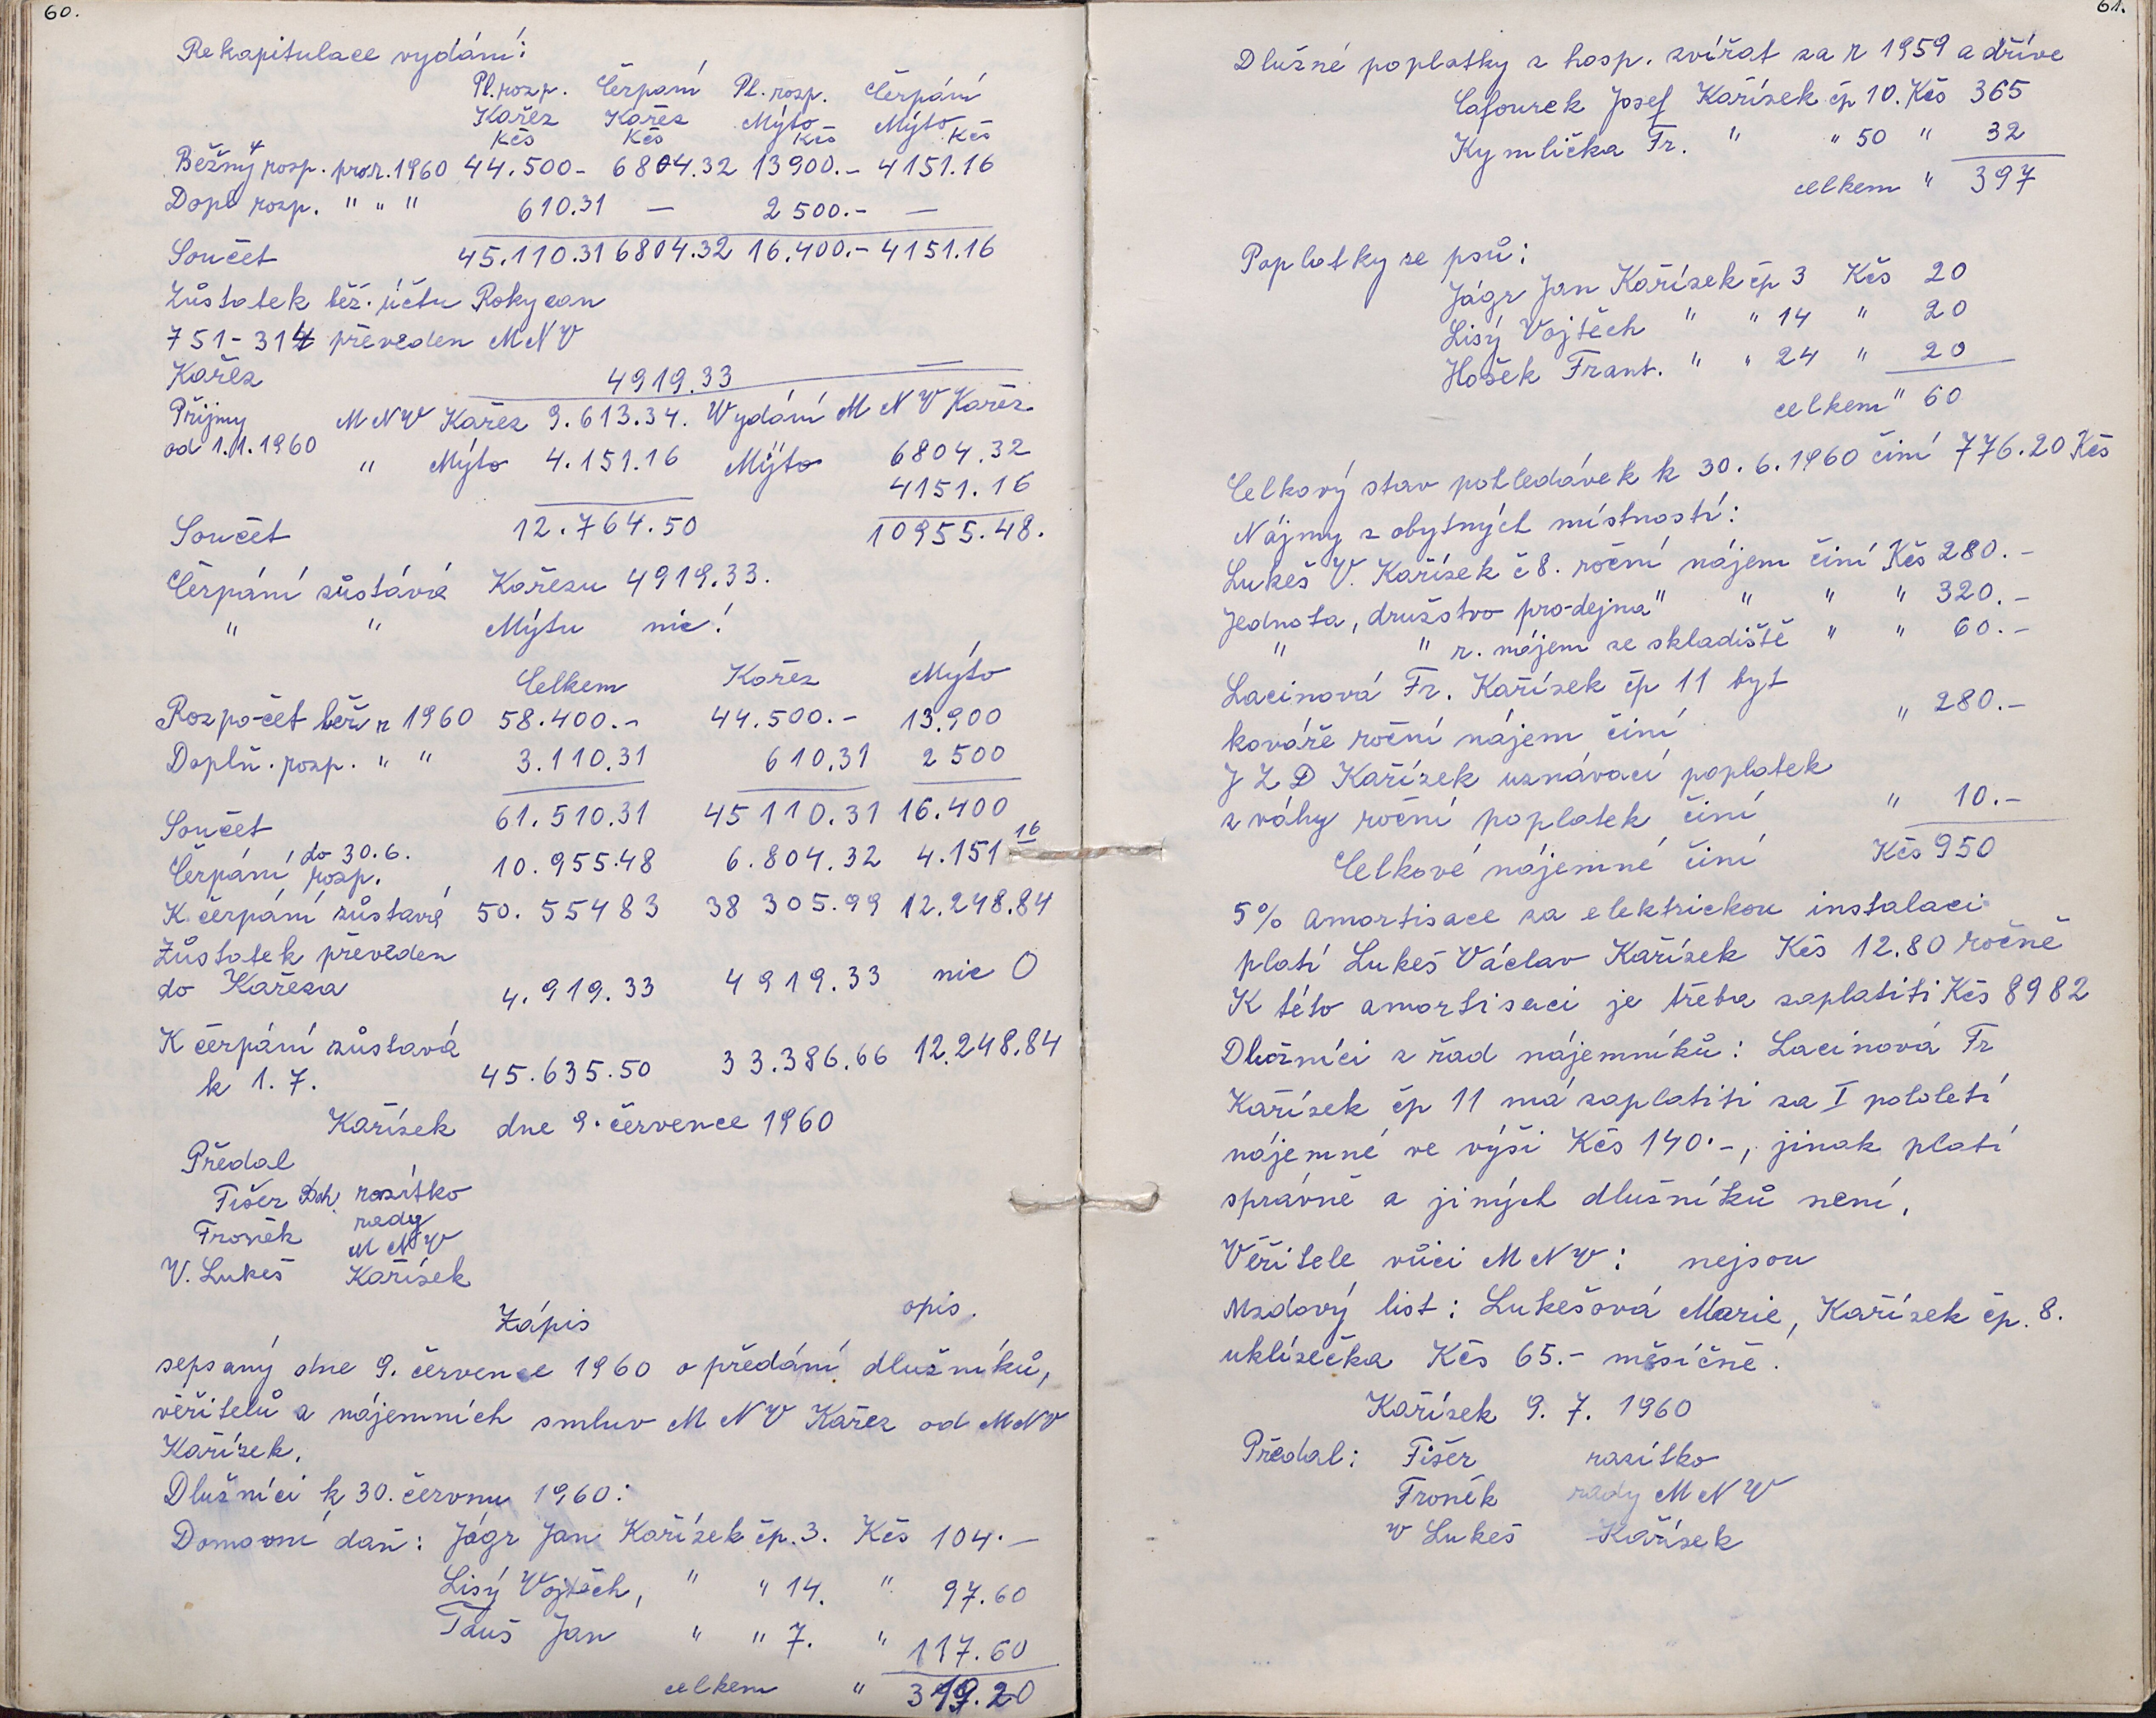 60.
Rekapitulace vydání:
Pl. rozp. Čerpaní Pl. rozp. Čerpání
Kařez Kařez Mýto Mýto
Kčs Kčs Kčs Kčs
Běžný rozp. pro r. 1960 44.500- 6804.32 13900.- 4151.16
Dopl rozp. " " " 610.31 — 2500.- —
Součet 45.110.31 6804.32 16.400.- 4151.16
Zůstatek běž. účtu Rokycan
751-314 převeden MNV
Kařez 4919.33 —
Příjmy MNV Kařez 9.613.34. Vydání MNV Kařez
od 1.1.1960 " Mýto 4.151.16 Mýto 6804.32
4151.16
Součet 12.764.50 10955.48.
Čerpání zůstává Kařezu 4919.33.
" " Mýtu nic!
Celkem Kařez Mýto
Rozpočet běž r 1960 58.400.- 44.500.- 13.900
Doplň. rozp. " " 3.110.31 610.31 2500
Součet 61.510.31 45110.31 16.400
Čerpání do 30.6. rozp. 10.955.48 6.804.32 4.151 16
K čerpání zůstavá 50.55483 38305.99 12.248.84
Zůstatek převeden
do Kařeza 4.919.33 4919.33 nic 0
K čerpání zůstavá
k 1.7. 45.635.50 33.386.66 12.248.84
Kařízek dne 9. července 1960
Předal
Fišer Boh. razítko
Froněk rady
MNV
V. Lukeš Kařízek
Zápis opis.
sepsaný dne 9. července 1960 o předání dlužníků,
věřitelů a nájemních smluv MNV Kařez od MNV
Kařízek.
Dlužníci k 30. červnu 1960:
Domovní daň: Jágr Jan Kařízek čp. 3. Kčs 104.—
Lisý Vojtěch, " " 14. " 97.60
Tauš Jan " " 7. " 117.60
celkem " 319.20
61.
Dlužné poplatky z hosp. zvířat za r 1959 a dříve
Cafourek Josef Kařízek čp 10. Kčs 365
Kymlička Fr. " " 50 " 32
celkem " 397
Poplatky ze psů:
Jágr Jan Kařízek čp 3 Kčs 20
Lisý Vojtěch " " 14 " 20
Hošek Frant. " " 24 " 20
celkem " 60
Celkový stav pohledávek k 30.6.1960 činí 776.20 Kčs
Nájmy z obytných místností:
Lukeš V. Kařízek č 8. roční nájem činí Kčs 280.-
Jednota, družstvo prodejna" " " " 320.-
" " r. nájem ze skladiště " " 60.-
Lacinová Fr. Kařízek čp 11 byt
kováře roční nájem činí " 280.-
JZD Kařízek uznávací poplatek
z váhy roční poplatek činí " 10.-
Celkové nájemné činí Kčs 950
5% amortisace za elektrickou instalaci
platí Lukeš Václav Kařízek Kčs 12.80 ročně
K této amortisaci je třeba zaplatiti Kčs 8982
Dlužníci z řad nájemníků: Lacinová Fr
Kařízek čp 11 má zaplatiti za I pololetí
nájemné ve výši Kčs 140.-, jinak platí
správně a jiných dlužníků není.
Věřitele vůči MNV: nejsou
Mzdový list: Lukešová Marie, Kařízek čp. 8.
uklízečka Kčs 65.- měsíčně.
Kařízek 9. 7. 1960
Předal: Fišer razítko
Froněk rady MNV
V Lukeš Kařízek